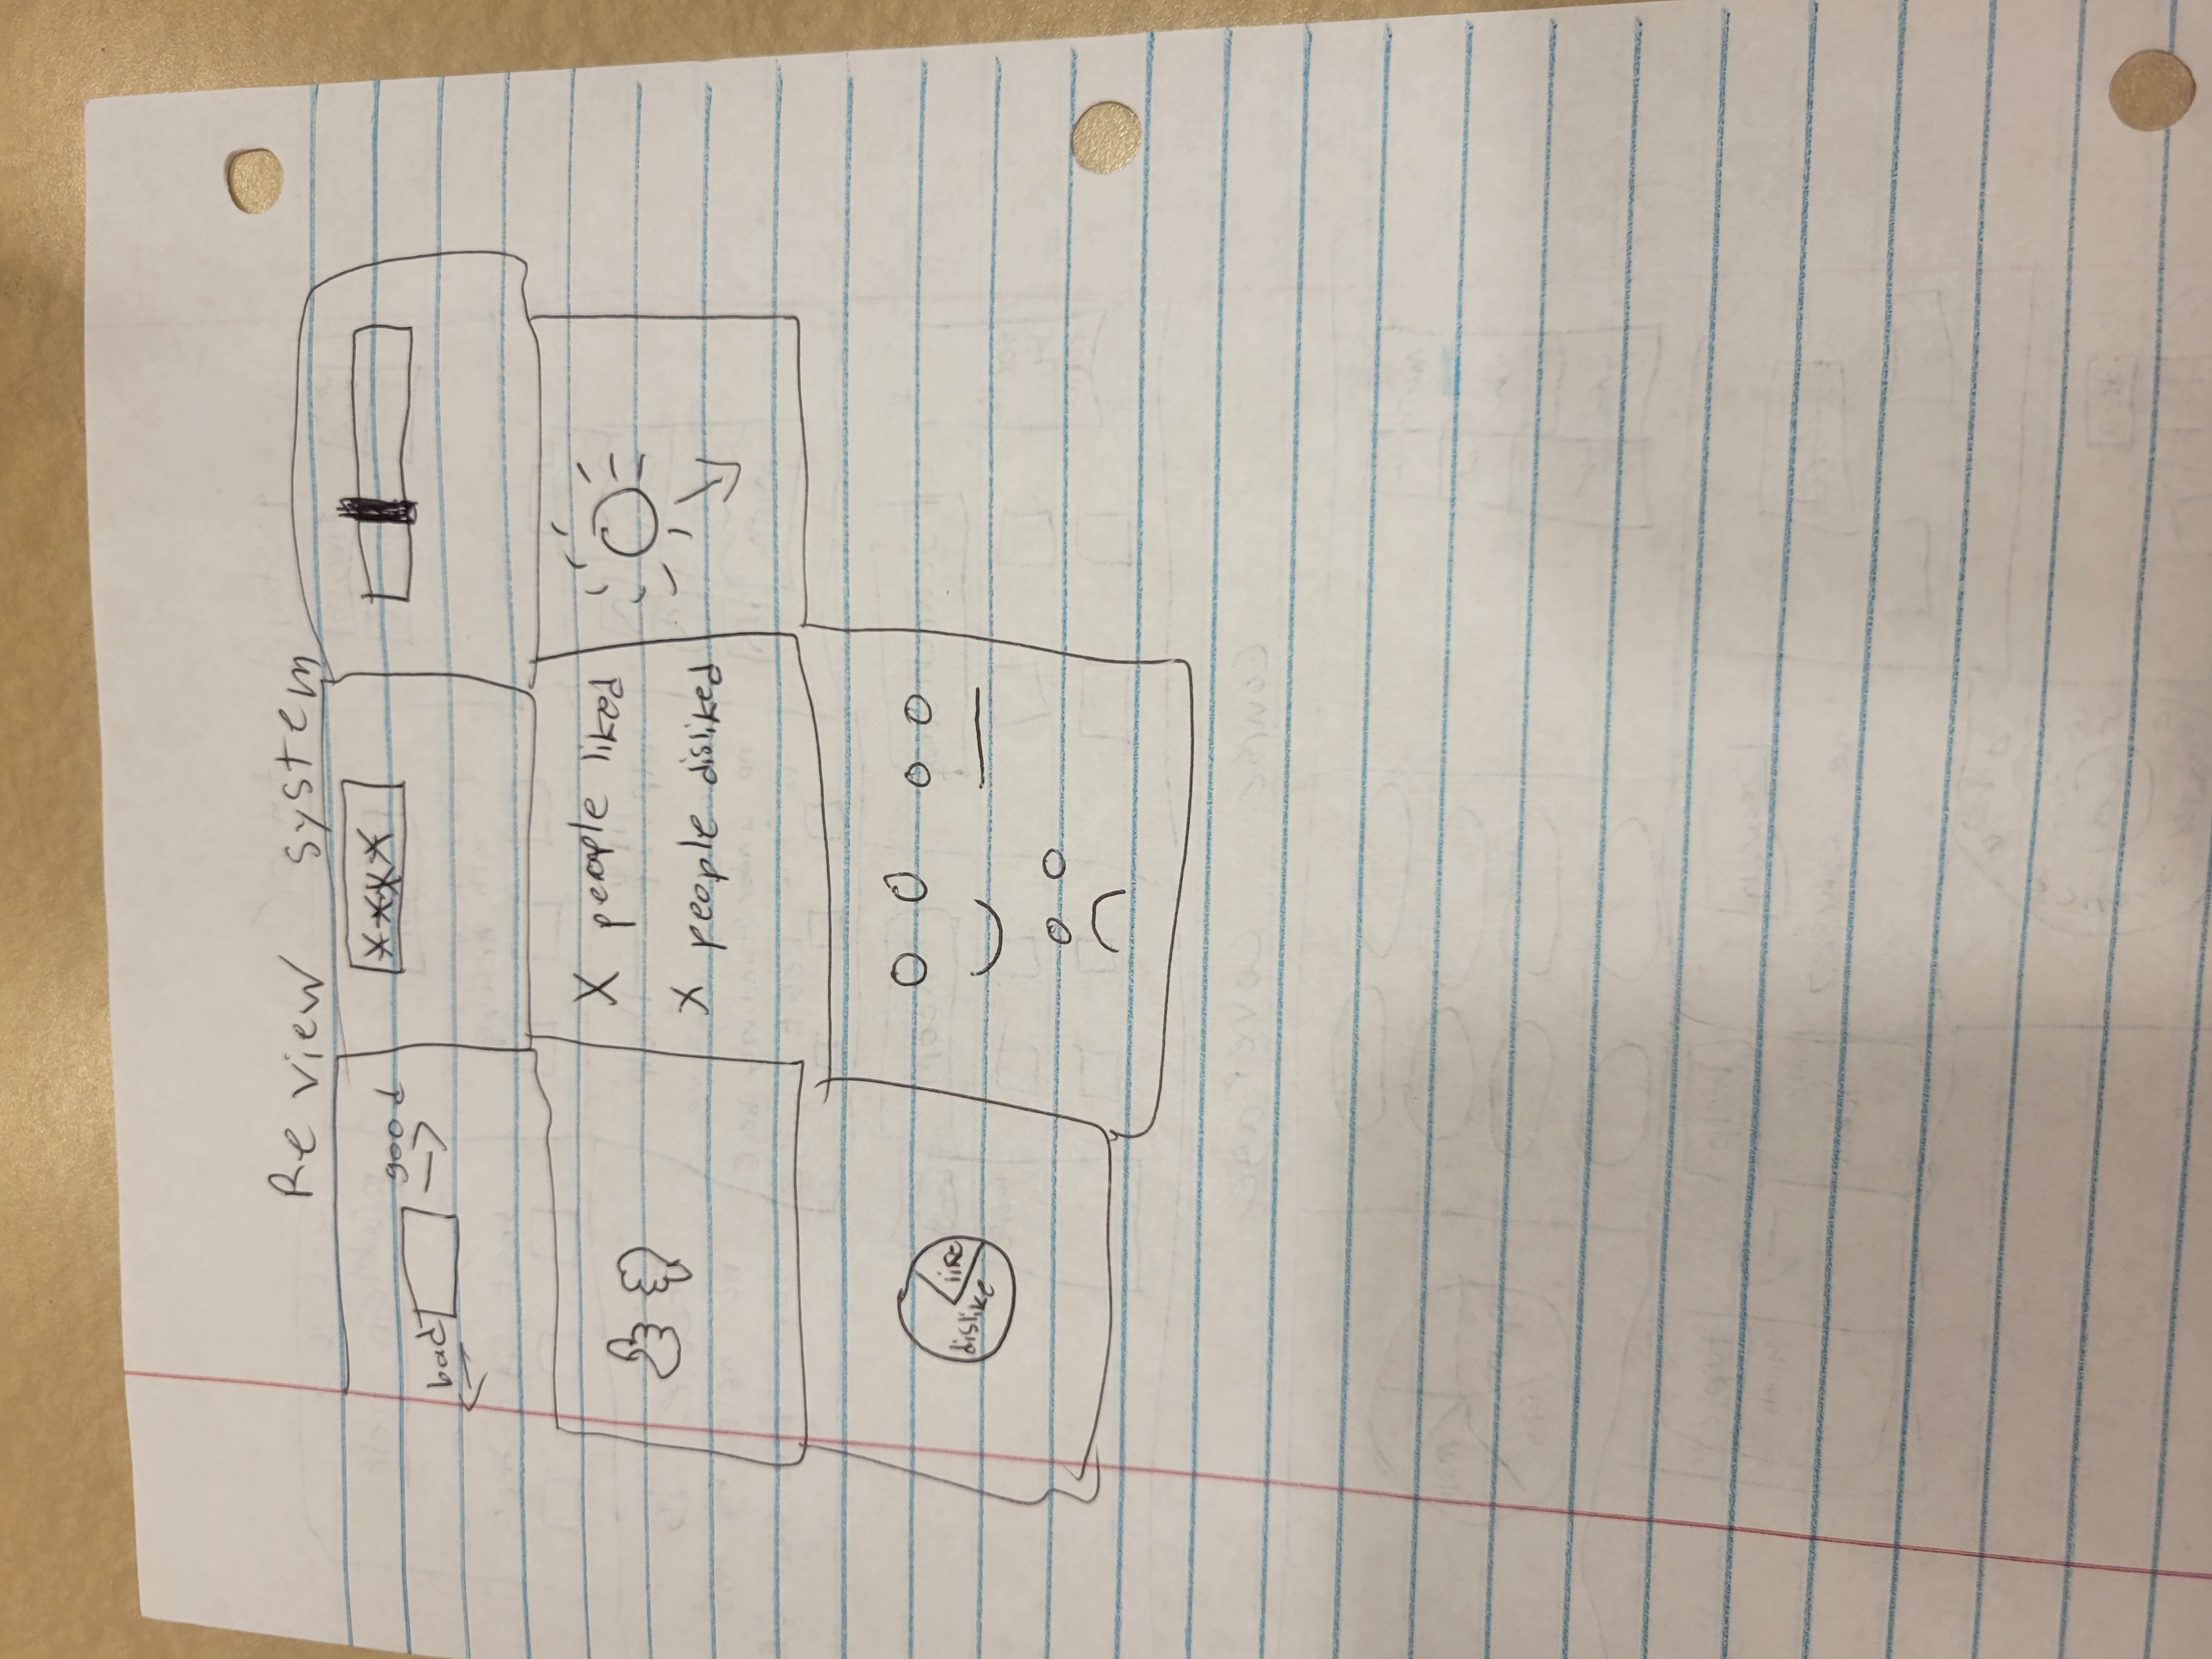 Review system
good
bad
X people liked
X people disliked
like
dislike